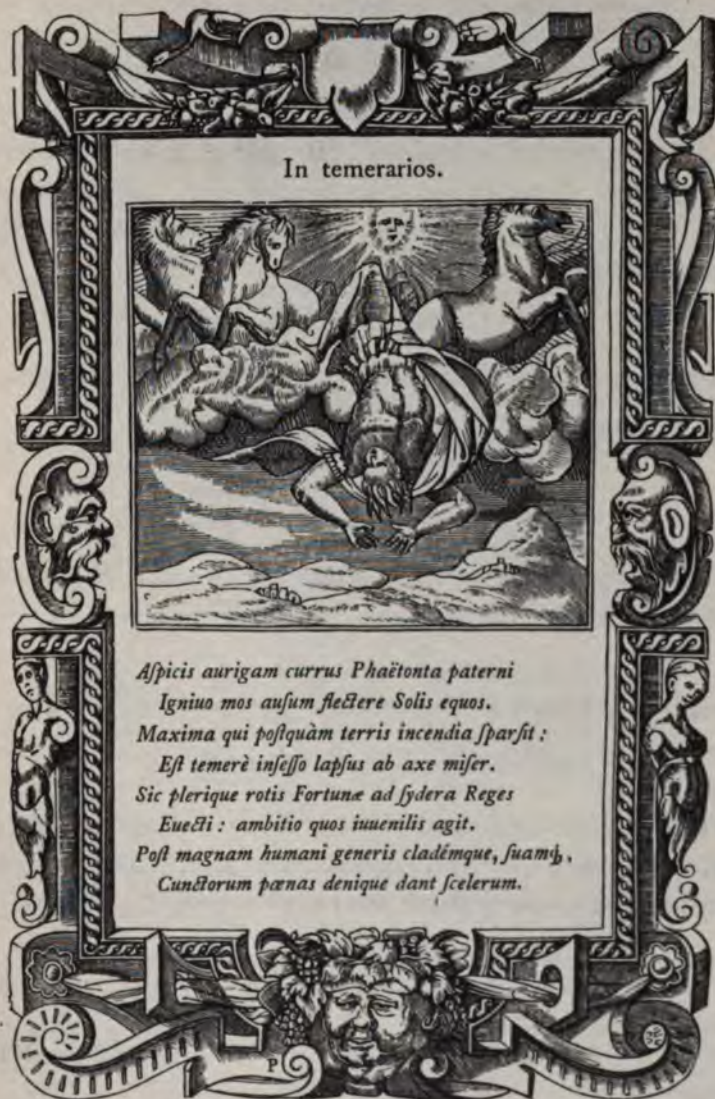 In temerarios.
Aſpicis aurigam currus Phaëtonta paterni
Igniuo mos auſum flectere Solis equos.
Maxima qui poſtquàm terris incendia ſparſit :
Eſt temerè inſeſſo lapſus ab axe miſer.
Sic plerique rotis Fortunæ ad ſydera Reges
Euecti : ambitio quos iuuenilis agit.
Poſt magnam humani generis cladémque, ſuamq́;,
Cunctorum pœnas denique dant ſcelerum.
P